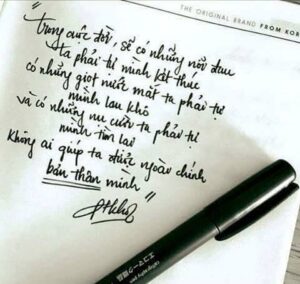 THE ORIGINAL BRAND FROM KOR
"Trong cuộc đời, sẽ có những nỗi đau
ta phải tự mình kết thúc
có những giọt nước mắt ta phải tự
mình lau khô
và có những nụ cười ta phải tự
mình tìm lại
không ai giúp ta được ngoài chính
bản thân mình"